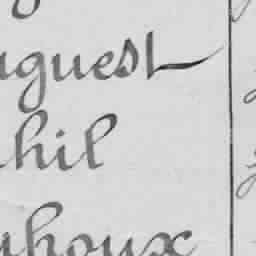 uguest
hil
houx